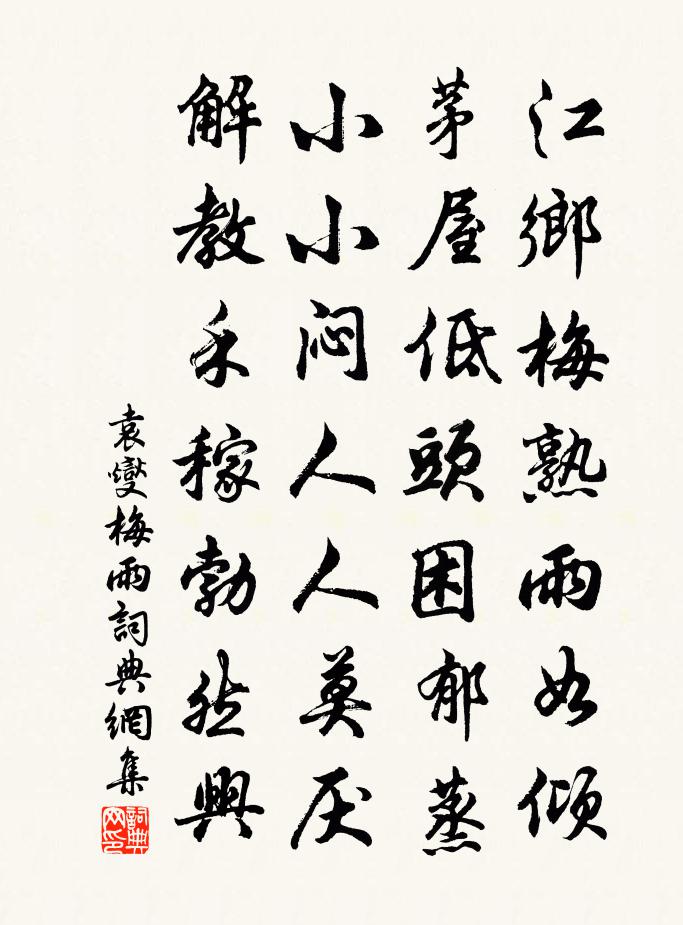 江鄉梅熟雨如傾
茅屋低頭困郁蒸
小小闷人人莫厌
解教禾稼勃然興
袁燮梅雨詞典網集
詞典網印